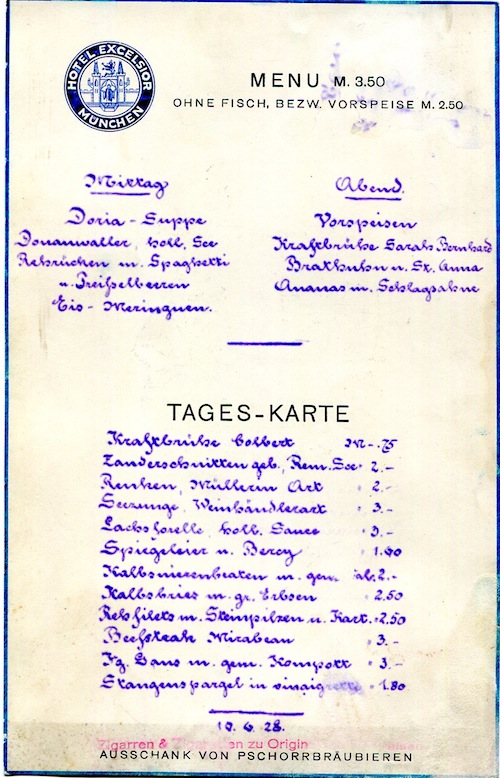 HOTEL EXCELSIOR
MÜNCHEN
MENU M. 3.50
OHNE FISCH, BEZW. VORSPEISE M. 2.50
Mittag
Doria-Suppe
Donauwaller, holl. See
Rehrücken m. Spaghetti
u. Preißelbeeren
Eis-Meringuen.
Abend.
Vorspeisen
Kraftbrühe Sarah Bernhard
Brathuhn n. St. Anna
Ananas m. Schlagsahne
TAGES-KARTE
Kraftbrühe Colbert M -.75
Zanderschnitten geb., Rem. Sce " 2.-
Renken, Müllerin Art " 2.-
Seezunge, Weinhändlerart " 3.-
Lachsforelle, holl. Sauce " 3.-
Spiegeleier n. Bercy " 1.60
Kalbsnierenbraten m. gem. Sal. 2.-
Kalbsbries m. gr. Erbsen " 2.50
Rehfilets m. Steinpilzen u. Kart. " 2.50
Beefsteak Mirabeau " 3.-
Jg. Gans m. gem. Kompott " 3.-
Stangenspargel in vinaigrette " 1.80
19. 6. 28.
Zigarren & en zu Origin
AUSSCHANK VON PSCHORRBRÄUBIEREN